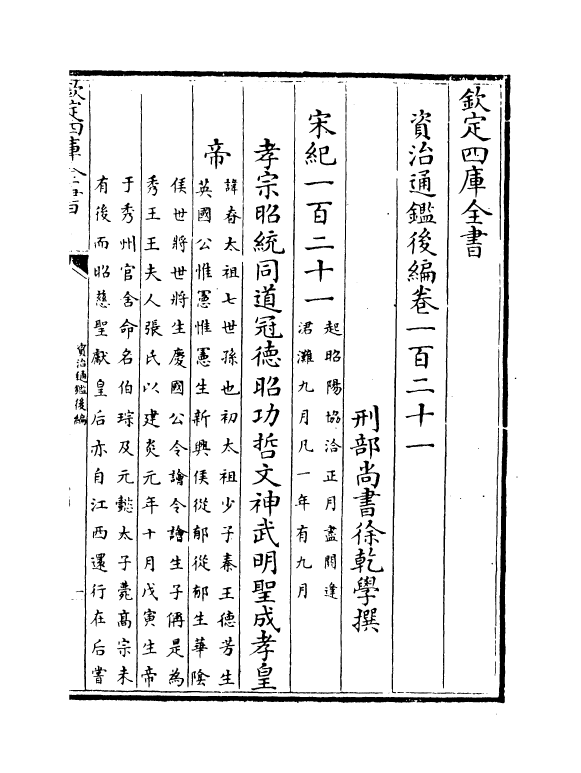 欽定四庫全書
資治通鑑後編卷一百二十一
刑部尚書徐乾學撰
宋紀一百二十一
起昭陽協洽正月盡閼逢
涒灘九月凡一年有九月
孝宗昭統同道冠德昭功哲文神武明聖成孝皇
帝
諱眘太祖七世孫也初太祖少子秦王德芳生
英國公惟憲惟憲生新興侯從郁從郁生華陰
侯世將世將生慶國公令譮令譮生子偁是為
秀王王夫人張氏以建炎元年十月戊寅生帝
于秀州官舍命名伯琮及元懿太子薨高宗未
有後而昭慈聖獻皇后亦自江西還行在后嘗
欽定四庫全書
資治通鑑後編
一